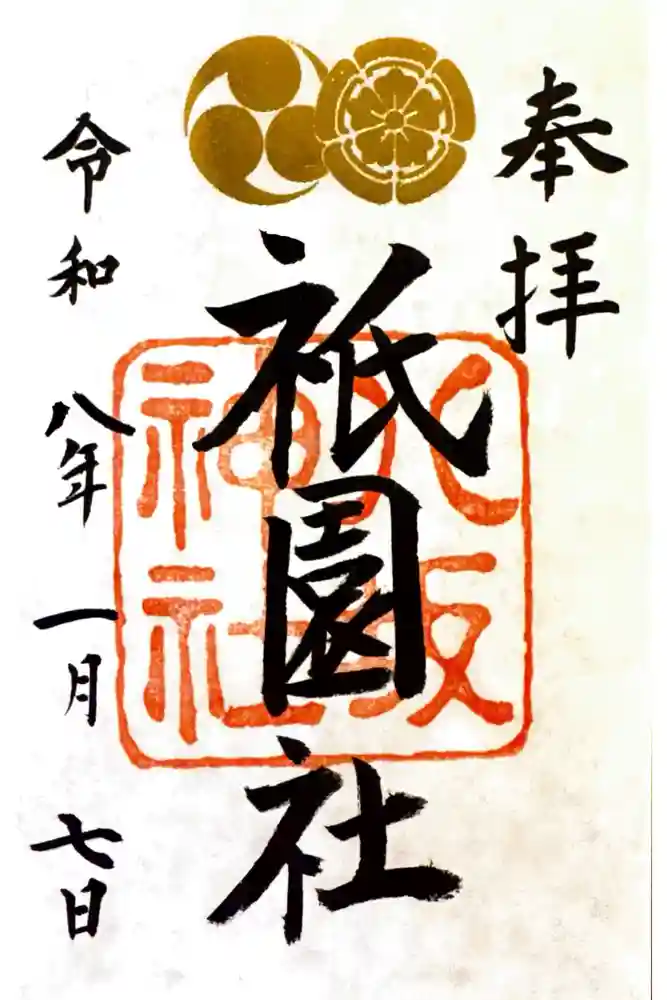 奉拝
祇園社
八坂
神社
令和八年一月七日